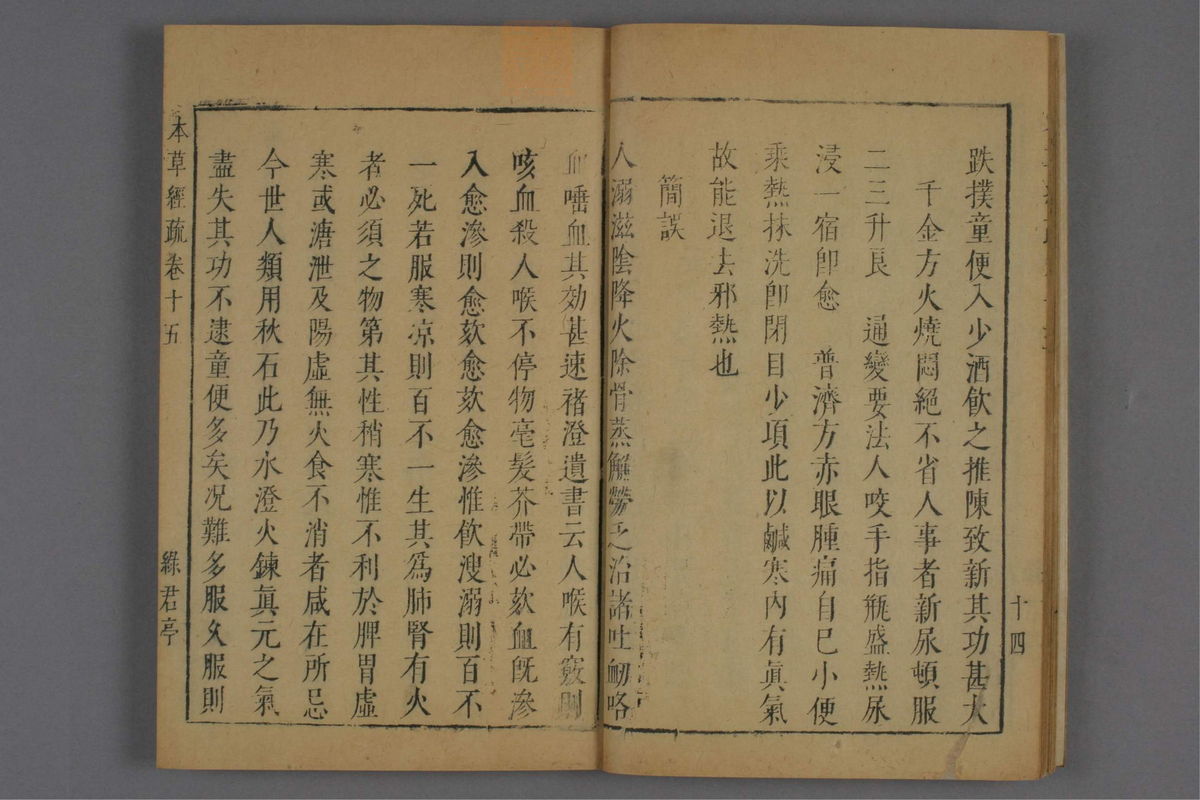 跌撲童便入少酒飲之推陳致新其功甚大
千金方火燒悶絕不省人事者新尿頓服
二三升良　通變要法人咬手指瓶盛熱尿
浸一宿卽愈　普濟方赤眼腫痛自己小便
乘熱抹洗卽閉目少項此以鹹寒內有眞氣
故能退去邪熱也
簡誤
人溺滋陰降火除骨蒸解勞乏治諸吐衂咯
血唾血其効甚速褚澄遺書云人喉有竅則
咳血殺人喉不停物毫髮芥帶必欬血旣滲
入愈滲則愈欬愈欬愈滲惟飲溲溺則百不
一死若服寒凉則百不一生其爲肺腎有火
者必須之物第其性稍寒惟不利於脾胃虛
寒或溏泄及陽虛無火食不消者咸在所忌
今世人類用秋石此乃水澄火鍊眞元之氣
盡失其功不逮童便多矣况難多服久服則
本草經疏卷十五
綠君亭
十四